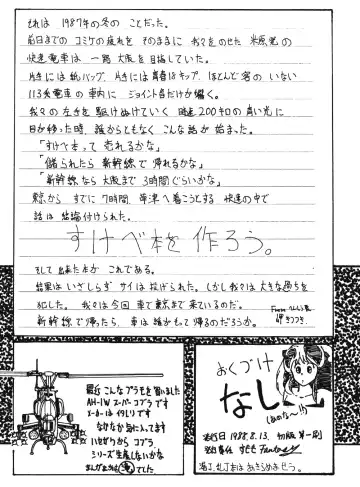 それは 1987年の冬の ことだった。
前日までの コミケの疲れを そのままに 我々をのせた 米原発の
快速電車は 一路 大阪を 目指していた。
片手には 紙バッグ、片手には 青春18キップ、ほとんど客の いない
113系電車の 車内に ジョイント音だけが響く。
我々の 左手を 駆けぬけていく 時速200キロの 青い光に
目が移った時、誰からともなく こんな話が 始まった。
「すけべ本って 売れるかな」
「儲られたら 新幹線で 帰れるかな」
「新幹線なら 大阪まで 3時間ぐらいかな」
東京から すでに 7時間、草津へ着こうとする 快速の中で
話は 結論付けられた。
すけべ本を 作ろう。
そして 出来た本が これである。
結果は いざしらず サイは投げられた。しかし我々は 大きな過ちを
犯した。我々は今回 車で東京まで 来ているのだ。
新幹線で帰ったら、車は誰がもって帰るのだろうか。
最近 こんなプラモを 買いました
AH-1W スーパーコブラ です
メーカーは イタレリ です
なかなか 気に入ってます
シリーズ 生産しないかな
でした
おくづけ
なし
(あのな〜!!)
発行日 1988.8.13. 初版 第一刷
発行責任 すもも Fantasy
落丁、乱丁本は あきらめましょう。